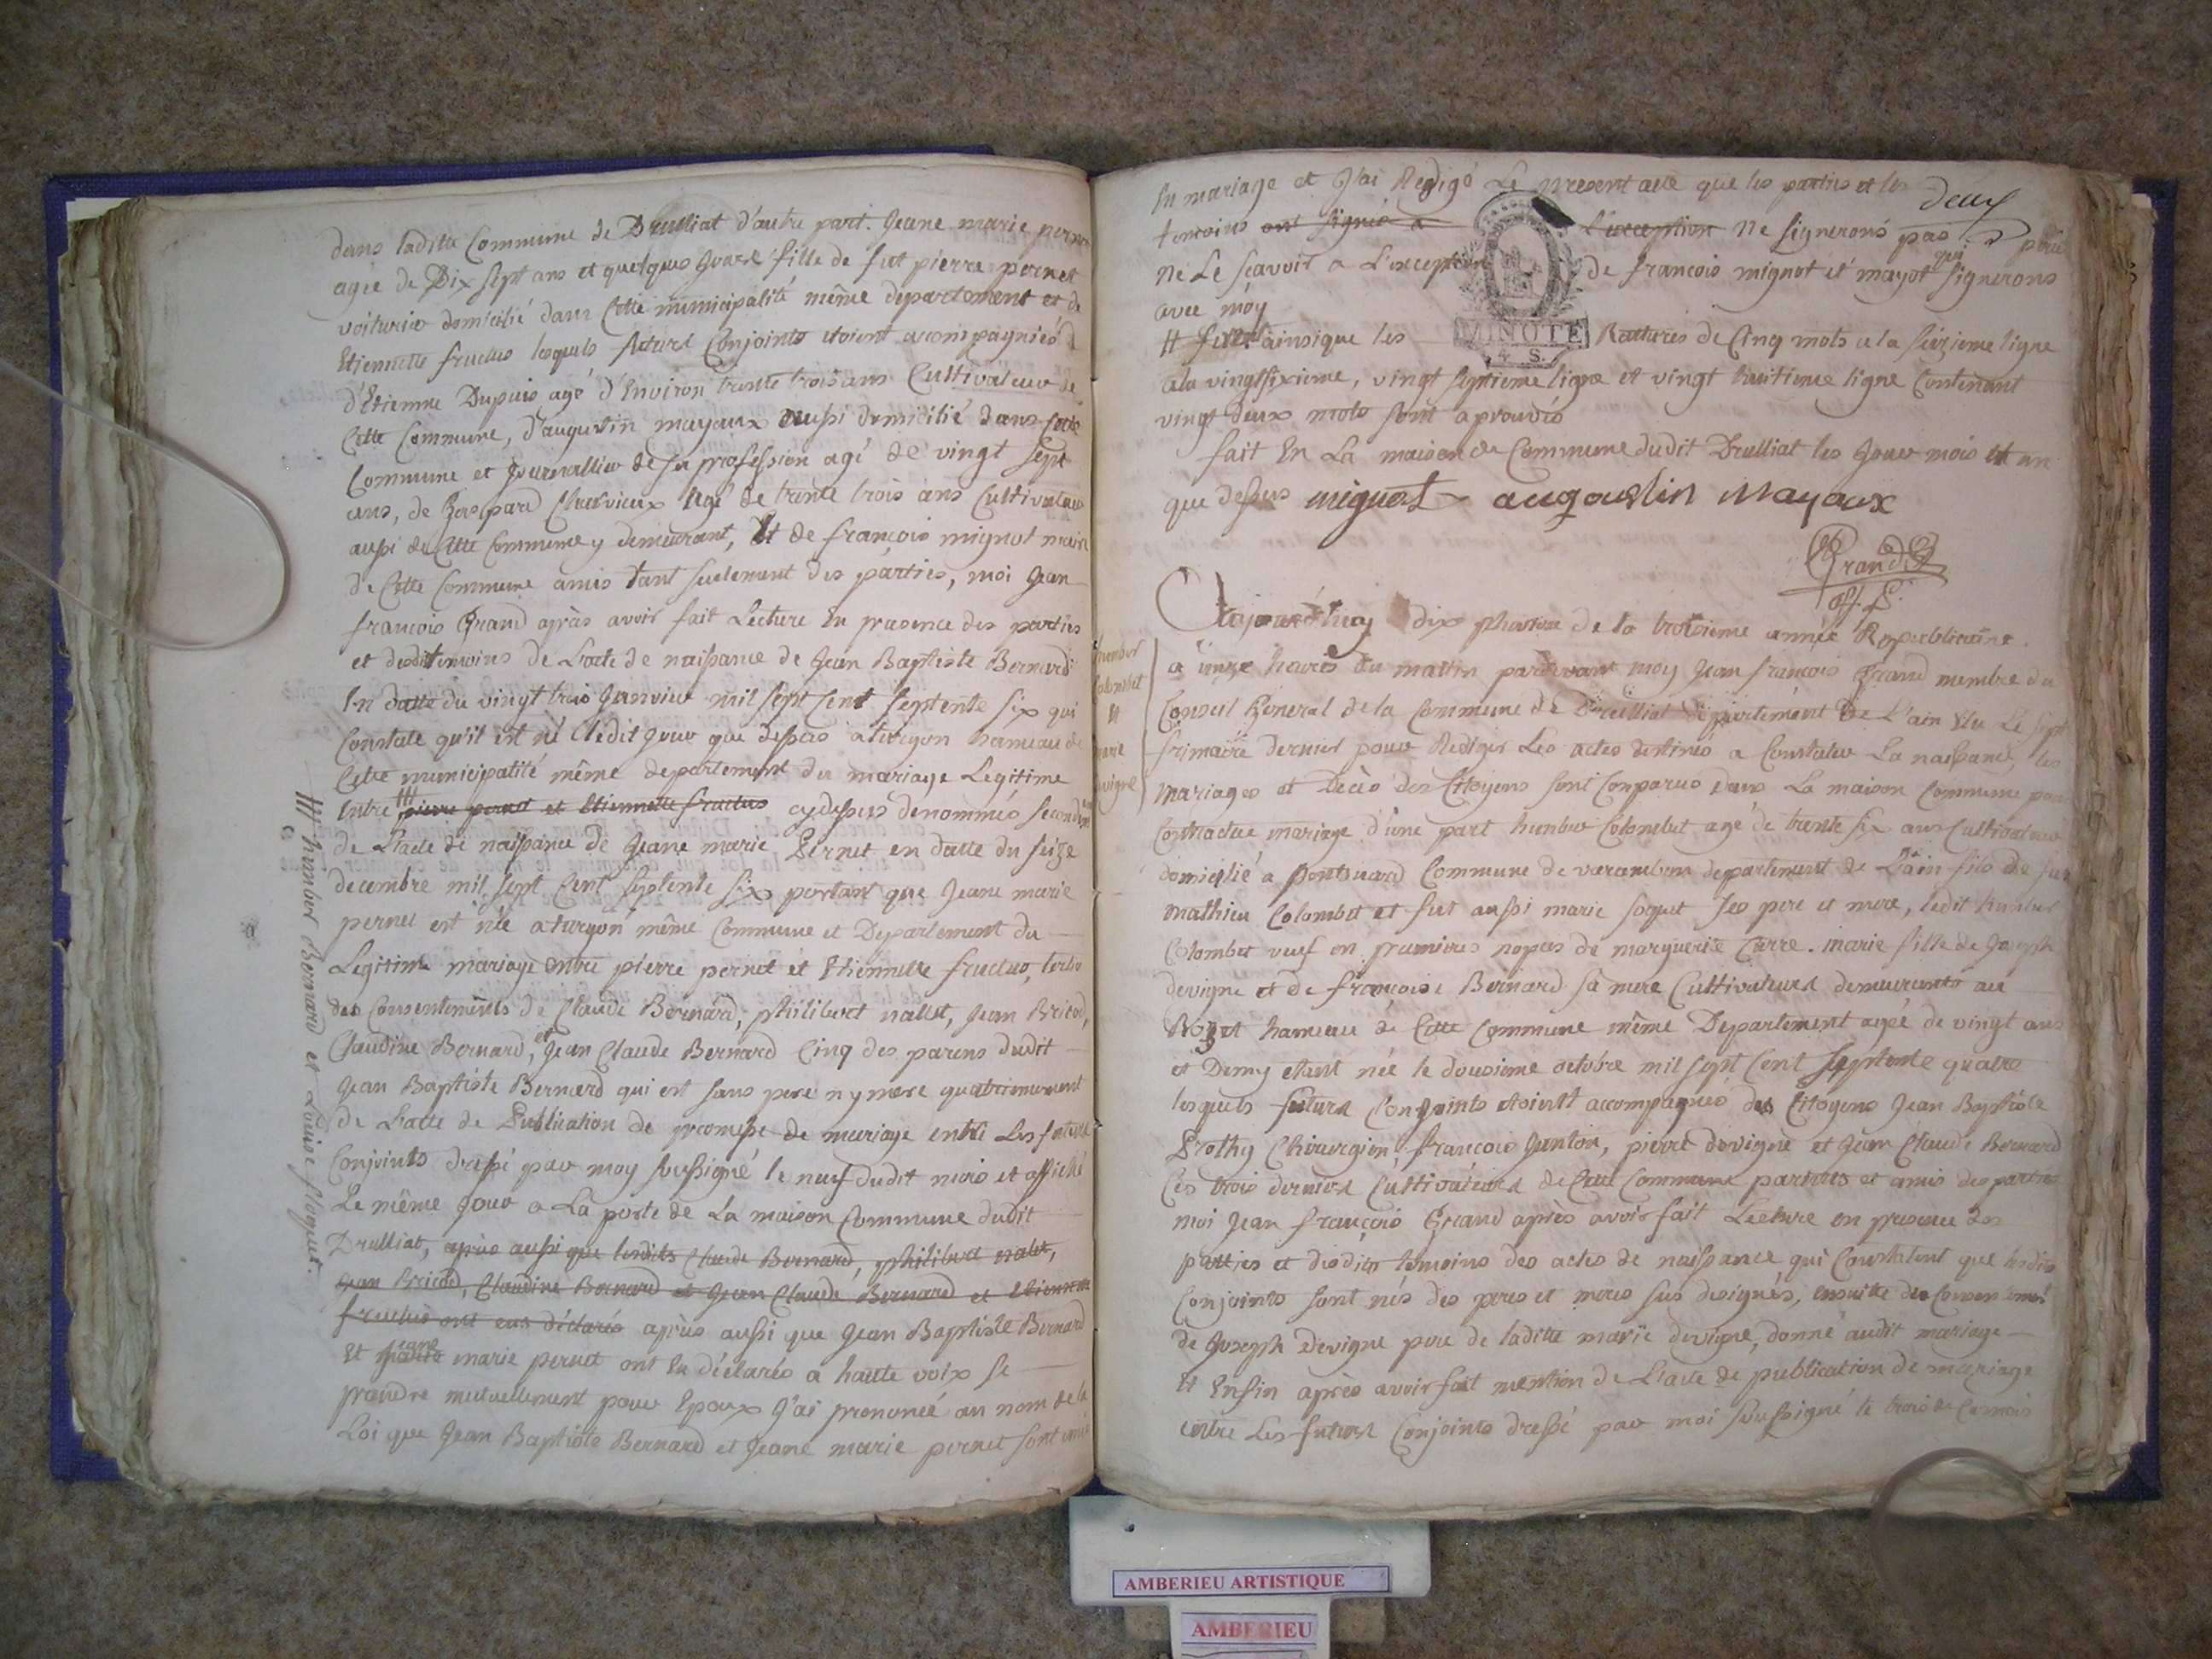 dans laditte Commune de Drulliat d'autre part. Jeane marie pernet
agée de Dix sept ans et quelques jours fille de fut pierre pernet
voiturier domicilié dans Cette municipalité même departement et de
Etiennette fructus lesquels futurs Conjoints etoient accompagniés
d'Etienne Dupuis agé d'Environ trente trois ans Cultivateur de
Cette Commune, d'augustin mayaux aussi domicilié dans cette
Commune et journallier de sa profession agé de vingt sept
ans, de Gaspard Chervieux agé de trente trois ans Cultivateur
aussi de Cette Commune y demeurant, Et de françois mignot maire
de Cette Commune amis tant seulement des parties, moi Jean
francois Grand après avoir fait Lecture En presence des parties
et desdit temoins de L'acte de naissance de Jean Baptiste Bernard
En datte du vingt trois Janvier mil sept Cent septente six qui
Constate qu'il est né ledit jour que dessus a turgon hameau de
Cette municipalité même departement du mariage Legitime
Entre pierre pernet et Etiennette fructus cydessus denommés, secondement
de L'acte de naissance de Jeane marie Pernet en datte du seize
decembre mil sept Cent septente six portant que Jeane marie
pernet est née a turgon même Commune et Departement du
Legitime mariage entre pierre pernet et Etiennette fructus, tertio
des Consentements de Claude Bernard, philibert nallet, Jean Bricod,
Claudine Bernard, et Jean Claude Bernard Cinq des parens dudit
Jean Baptiste Bernard qui est sans pere ny mere quatriemement
de L'acte de Publication de promesse de mariage entre Les futurs
Conjoints dressé par moy soussigné le neuf dudit mois et affiché
Le même jour a La porte de La maison Commune dudit
Drulliat, après aussi que lesdits Claude Bernard, philibert nalet,
Jean Bricod, Claudine Bernard et Jean Claude Bernard et Etiennette
fructus ont eus déclarés après aussi que Jean Baptiste Bernard
Et jeane marie pernet ont Eu déclarés a haute voix se
prendre mutuellement pour Epoux J'ai prononcé au nom de la
Loi que Jean Baptiste Bernard et Jeane marie pernet sont unis
humber Bernard et Louise floquet.
En mariage et J'ai Redigé Le present acte que les parties et les deux
temoins ont signés a L'exception Ne signerons pas pour
ne Le scavoir a L'exception de francois mignot et mayot qui signerons
avec moy
ainsi que les Rattures de Cinq mots a la seizieme ligne
a la vingt sixieme, vingt septieme ligne et vingt huitieme ligne Contenant
vingt deux mots sont aprouvés
MINUTE
4 S.
fait En La maison de Commune dudit Drulliat les jour mois et an
que dessus mignot augoustin mayaux
Grand
off. P.
humber
Colombet
et
marie
devigne
Aujourd'huy dix pluviose de la troisieme année Republicaine
a onze heures du matin pardevant moy Jean francois Grand membre du
Conseil General de la Commune de Drulliat Departement De L'ain Elu Le sept
frimaire dernier pour Rediger Les actes destinés a Constater La naissance, les
mariages et Décès des Citoyens sont Comparus dans La maison Commune pour
Contracter mariage d'une part humber Colombet agé de trente six ans Cultivateur
domicilié a pontsuard Commune de varambon departement de L'ain fils de fut
mathieu Colombet et fut aussi marie soquet ses pere et mere, ledit humber
Colombet veuf en premieres nopces de marguerite Carre. marie fille de Joseph
devigne et de francoise Bernard sa mere Cultivateurs demeurants au
Rozet hameau de Cette Commune même Departement agée de vingt ans
et Demy etant née le dousieme octobre mil sept Cent septente quatre
lesquels futurs Conjoints etoient accompagniés des Citoyens Jean Baptiste
Prothy Chirurgien, francois Janton, pierre devigne et Jean Claude Bernard
Ces trois derniers Cultivateurs de Cette Commune parents et amis des parties
moi Jean francois Grand après avoir fait Lecture en presence des
parties et desdits temoins des actes de naissance qui Constatent que lesdits
Conjoints sont nés des peres et meres sus designés, ensuitte du Consentement
de Joseph devigne pere de laditte marie devigne, donné audit mariage
Et Enfin après avoir fait mention de L'acte de publication de mariage
entre Les futurs Conjoints dressé par moi soussigné le trois de Ce mois
AMBERIEU ARTISTIQUE
AMBERIEU